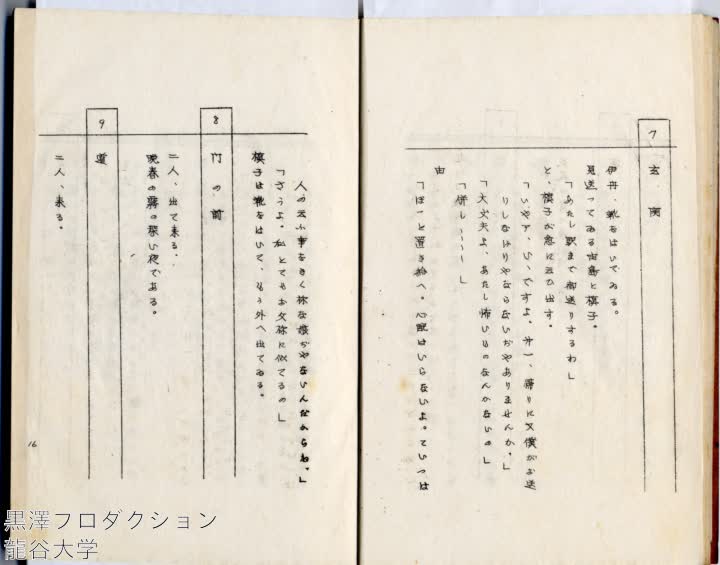 7
玄関
伊丹、靴をはいてゐる。
見送ってゐる由島と槙子。
「あたし駅まで御送りするわ」
と、槙子が急に云ひ出す。
「いやァ、いゝですよ。第一、帰りに又僕がお送
りしなけりやならないぢやありませんか。」
「大丈夫よ、あたし怖いものなんかないの。」
「併し、、、、」
由
「ほーと置き給へ。心配はいらないよ。こいつは
人の云ふ事をきく様な娘ぢやないんだからね。」
「さうよ。私とてもお父様に似てるの」
槙子は靴をはいて、もう外へ出てゐる。
8
門の前
二人、出て来る。
晩春の靄の深い夜である。
9
道
二人、来る。
16
黒澤プロダクション
龍谷大学